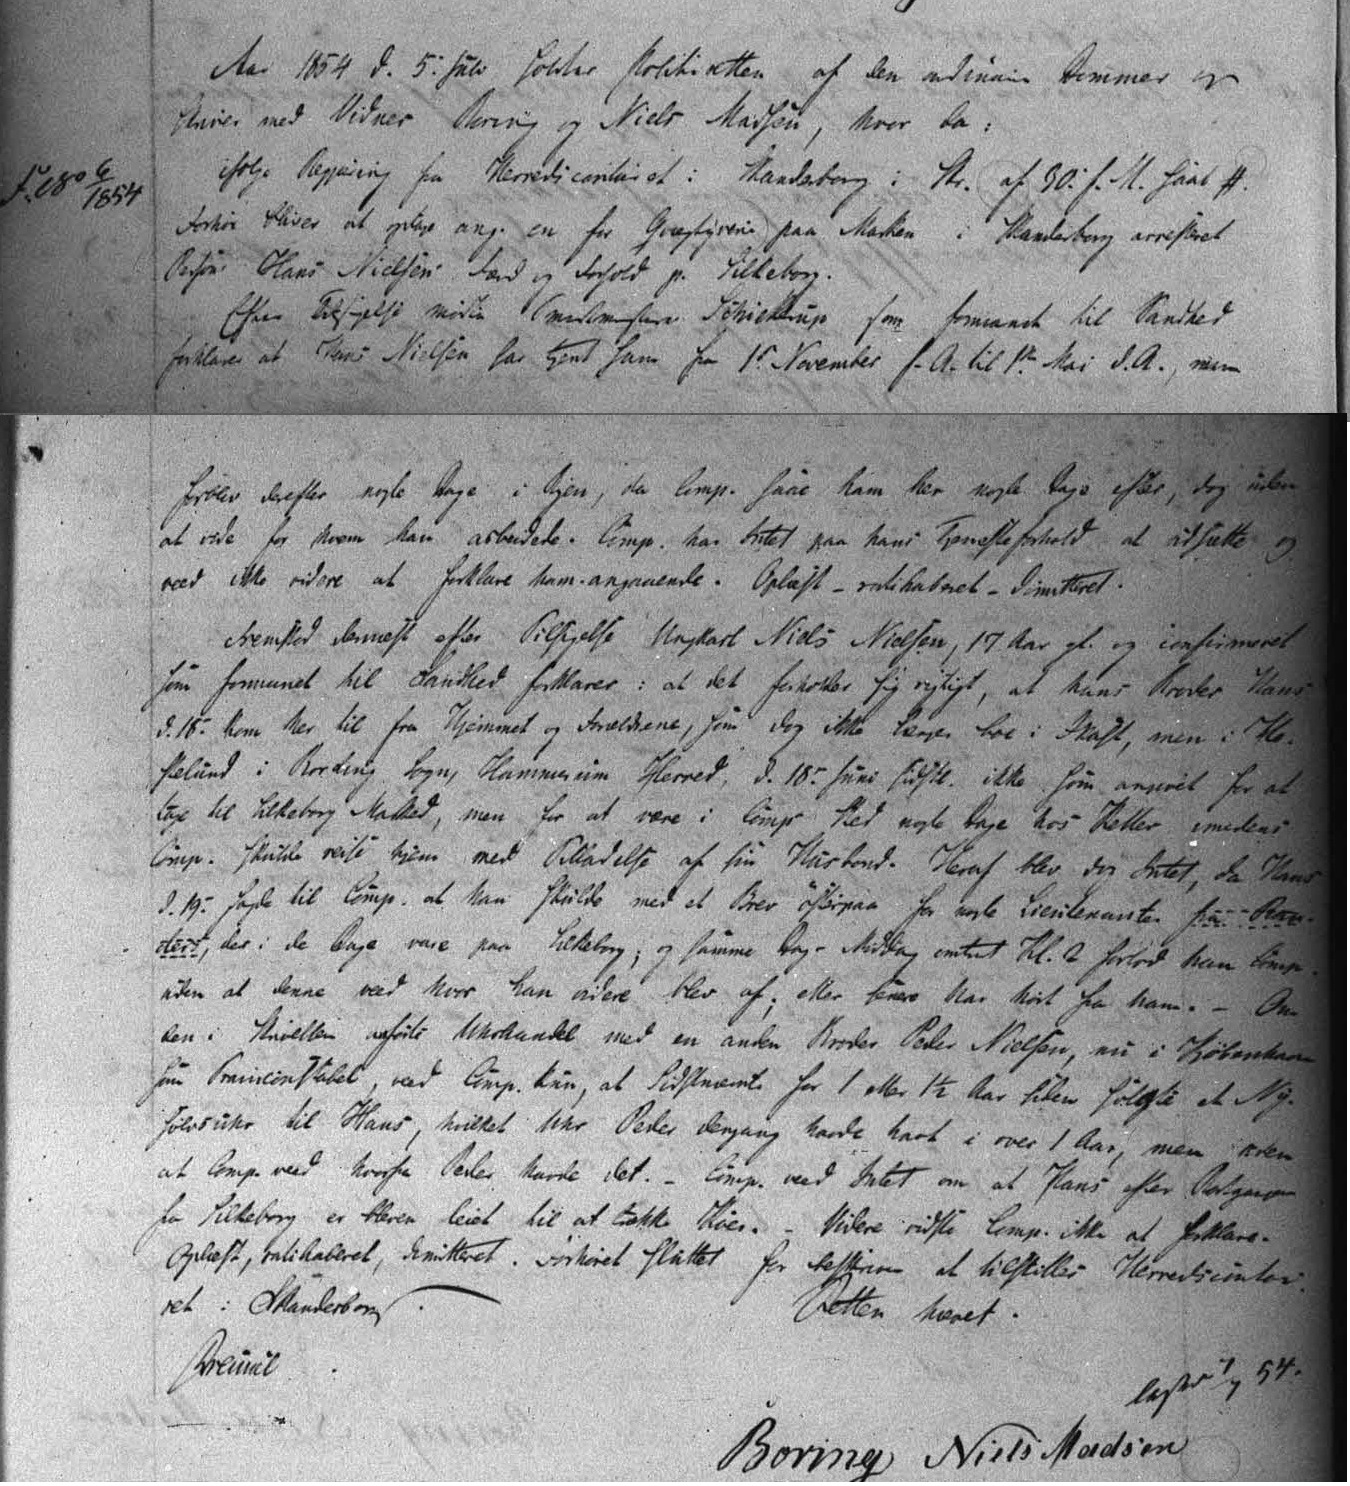 Aar 1854 d. 5. Juli holdtes Politiretten af den ordinaire Dommer og
Skriver med Vidner Boring og Niels Madsen, hvor da:
ifølge Reqvisition fra Herredscontoiret i Skanderborg i Skr. af 30. f. M.
1854
Forhør bliver at optage ang. en for Qvægtyverie paa Marken i Skanderborg arresteret
Person Hans Nielsens Færd og Forhold p. Silkeborg.
Efter Tilsigelse mødte Schiellerup som formanet til Sandhed
forklarer at Hans Nielsen har tjent ham fra 1ste November f. A. til 1ste Mai d. A., men
forblev derefter nogle Dage i Byen, da Comp. saae ham her nogle Dage efter, dog uden
at vide for hvem han arbeidede. Comp. har Intet paa hans Tjenesteforhold at udsætte og
veed ikke videre at forklare ham angaaende. Oplæst - ratihaberet - Dimitteret.
Fremstod dernæst efter Tilsigelse Ungkarl Niels Nielsen, 17 Aar gl. og confirmeret
som formanet til Sandhed forklarer: at det forholder sig rigtigt, at hans Broder Hans
d. 18. kom her til fra Hjemmet og Forældrene, som dog ikke længer boe i Skast, men i
i Rording Sogn, Hammerum Herred, d. 18. Juni sidstl. ikke som angivet for at
tage til Silkeborg Marked, men for at være i Comps Sted nogle Dage hos Ketter imedens
Comp. skulde reise hjem med Tilladelse af sin Husbond. Heraf blev dog Intet, da Hans
d. 19. sagde til Comp. at han skulde med et Brev østerpaa for nogle Lieutenanter fra Ran-
ders, der i de Dage vare paa Silkeborg; og samme Dags Middag omtrent Kl. 2 forlod han Comp.
uden at denne veed hvor han videre blev af, eller senere har hørt fra ham. - Om
den i Skrivelsen anførte Uhrhandel med en anden Broder Peder Nielsen, nu i Kjøbenhavn
som Trainconstabel, veed Comp. kun, at Sidstnævnte for 1 eller 1½ Aar siden solgte et
Sølvuhr til Hans, hvilket Uhr Peder dengang havde havt i over 1 Aar, men uden
at Comp. veed hvorfra Peder havde det. - Comp. veed Intet om at Hans efter Bortgangen
fra Silkeborg er bleven leiet til at trække Køer. - Videre vidste Comp. ikke at forklare.
Oplæst, ratihaberet, dimitteret. Forhøret sluttet for beskreven at tilstilles Herredscontoi-
ret i Skanderborg. Retten hævet.
54.
Boring Niels Madsen